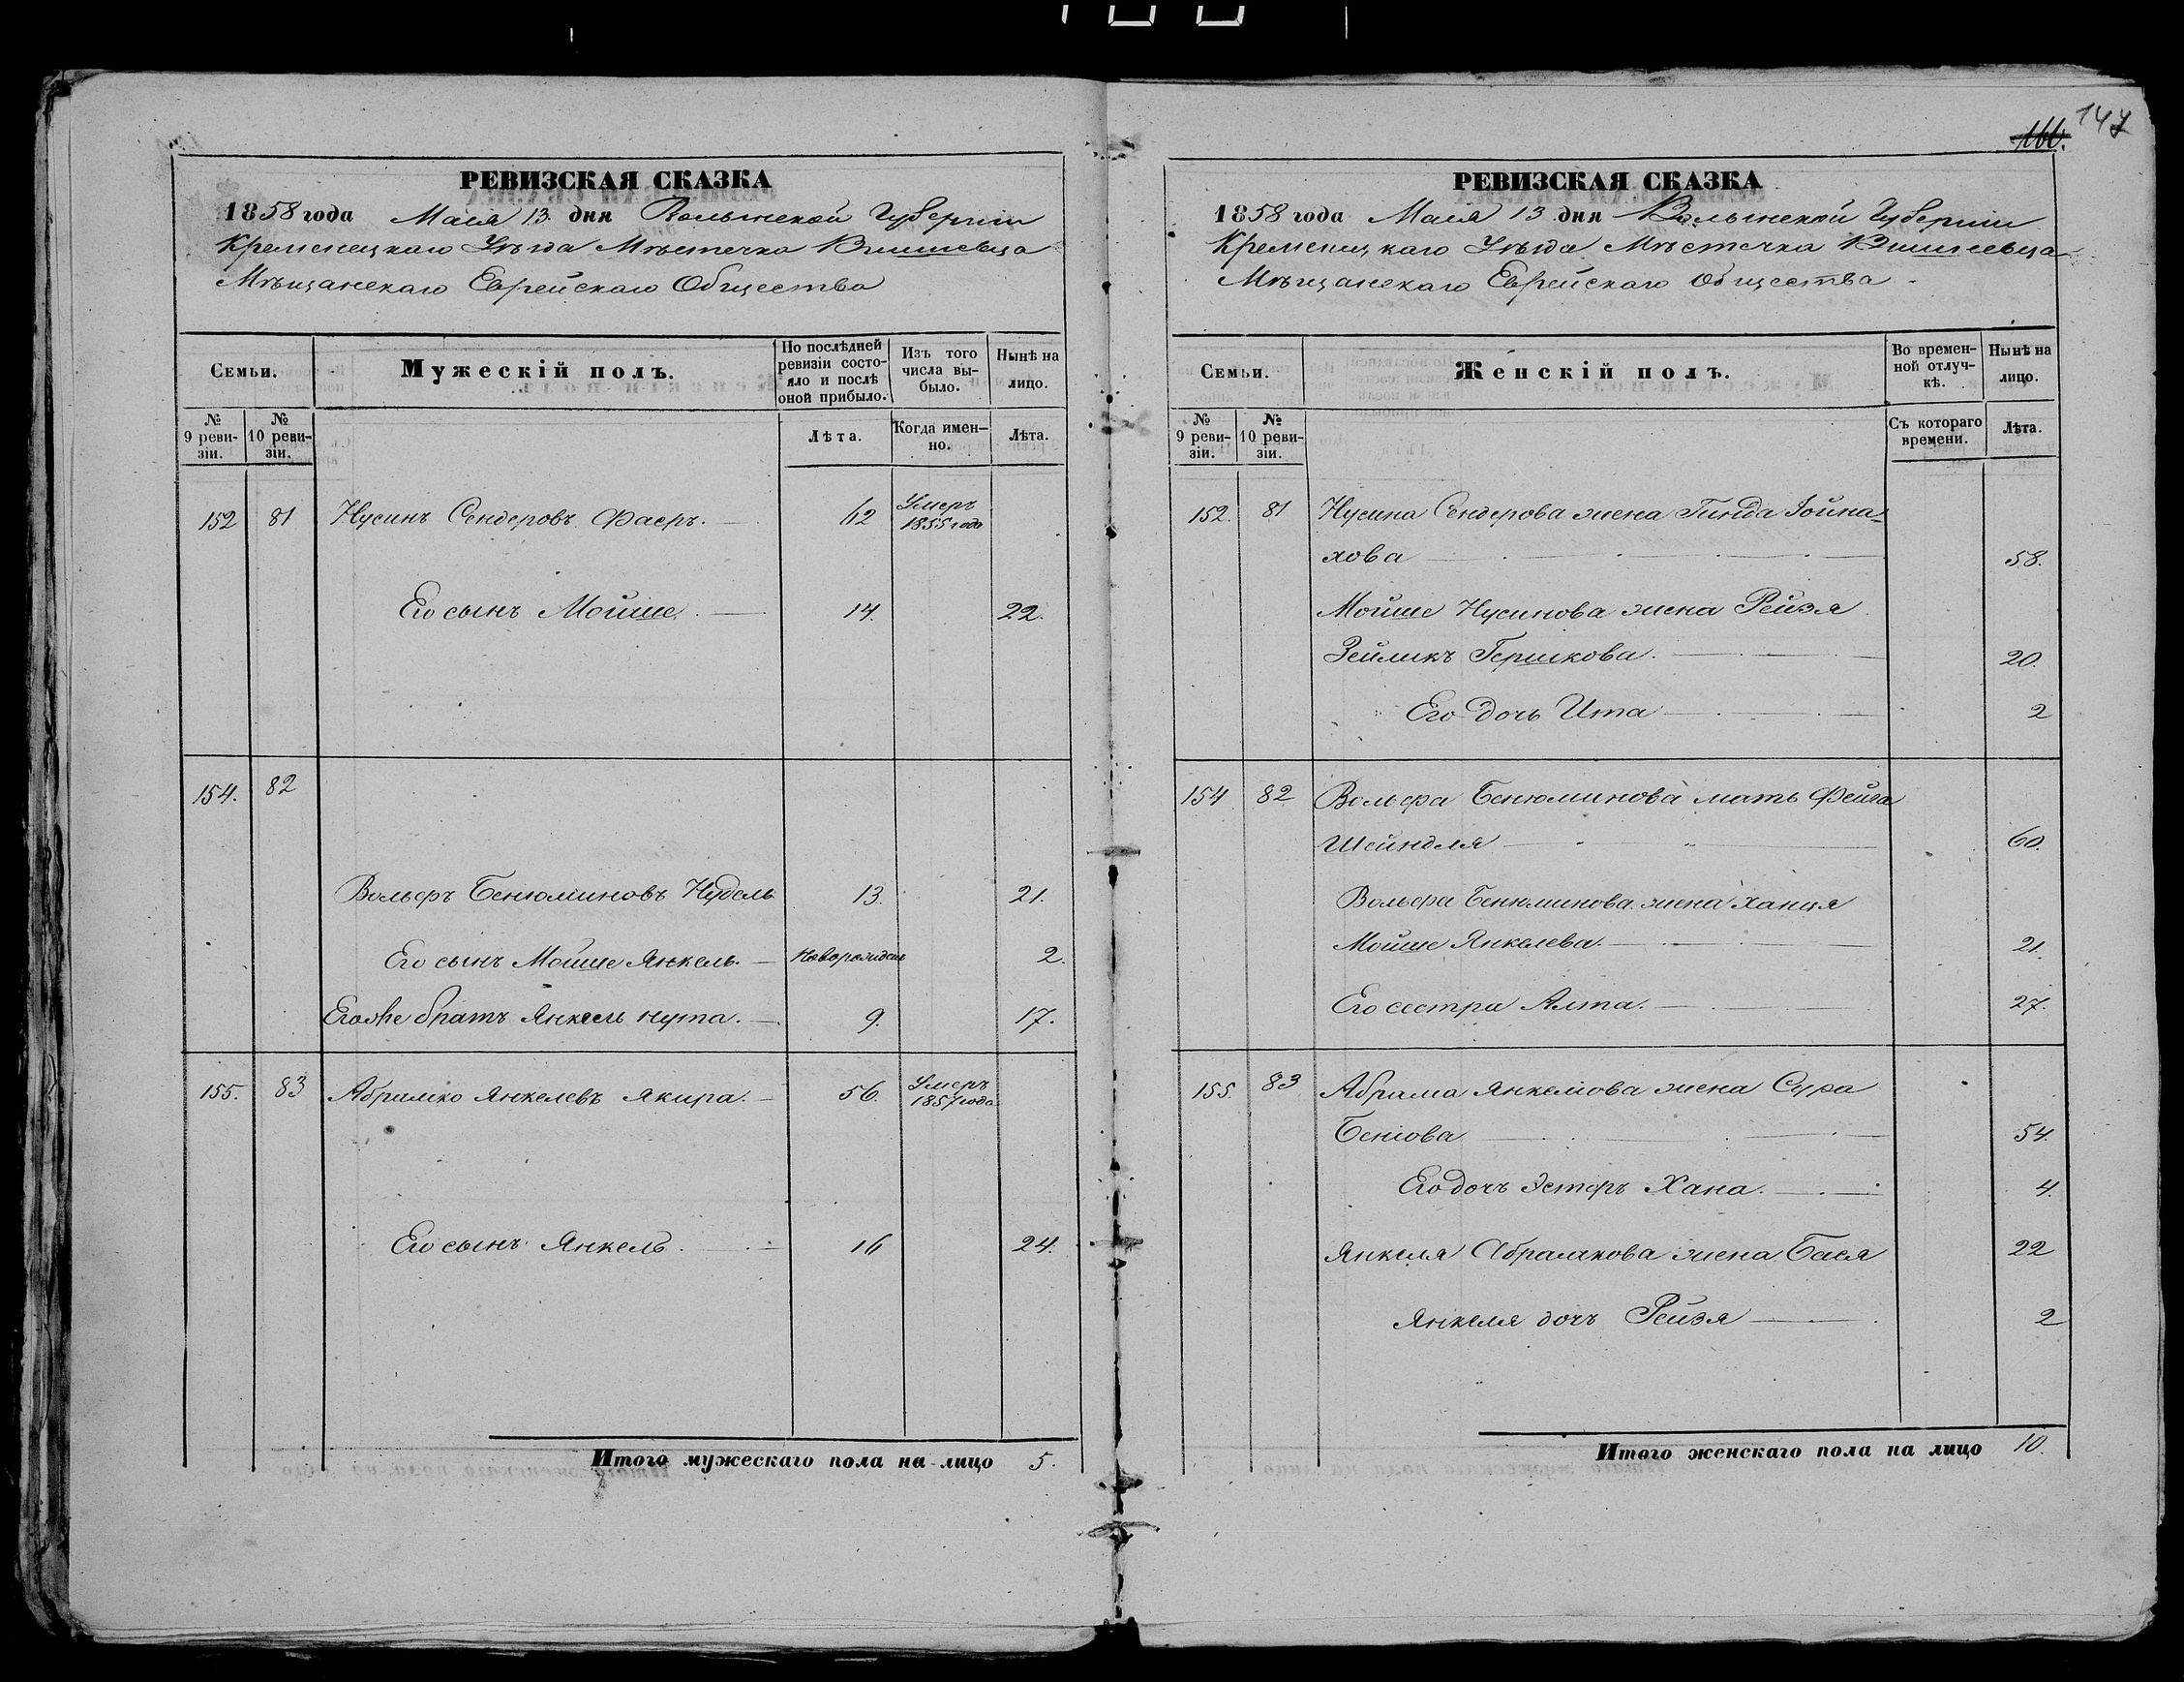 147
160.
РЕВИЗСКАЯ СКАЗКА
1858 года Маія 13 дня Волынской Губерніи
Кременецкаго Уѣзда Мѣстечка Вишневца
Мѣщанскаго Еврейскаго Общества
Семьи.
Мужескій полъ.
По послѣдней ревизіи состояло и послѣ оной прибыло.
Изъ того числа выбыло.
Нынѣ на лицо.
№ 9 ревизіи.
№ 10 ревизіи.
Лѣта.
Когда именно.
Лѣта.
152 81 Нусинъ Сендеровъ Фаеръ. 42 Умеръ 1855 года
Его сынъ Мойше. 14. 22.
154. 82
Вольфъ Бенюминовъ Нудель 13. 21.
Его сынъ Мойше Янкель. Новорожден 2.
Егоже братъ Янкель Нута. 9. 17.
155. 83 Абрамко Янкелевъ Якира. 56. Умеръ 1857 года
Его сынъ Янкель. 16 24.
Итого мужескаго пола на лицо 5.
РЕВИЗСКАЯ СКАЗКА
1858 года Маія 13 дня Волынской Губерніи
Кременецкаго Уѣзда Мѣстечка Вишневца
Мѣщанскаго Еврейскаго Общества.
Семьи.
Женскій полъ.
Во временной отлучкѣ.
Нынѣ на лицо.
№ 9 ревизіи.
№ 10 ревизіи.
Съ котораго времени.
Лѣта.
152. 81 Нусина Сендерова жена Гинда Іойна-
хова 58.
Мойше Нусинова жена Рейзя
Зейликъ Гершкова. 20.
Его дочь Ита 2
154 82 Вольфа Бенюминова мать Фейга
Шейндля 60.
Вольфа Бенюминова жена Ханця
Мойше Янкелева. 21.
Его сестра Алта. 27.
155. 83 Абрама Янкелова жена Сура
Беніова 54.
Его дочъ Эстеръ Хана. 4.
Янкеля Абрамкова жена Бася 22
Янкеля дочъ Рейзя 2
Итого женскаго пола на лицо 10.